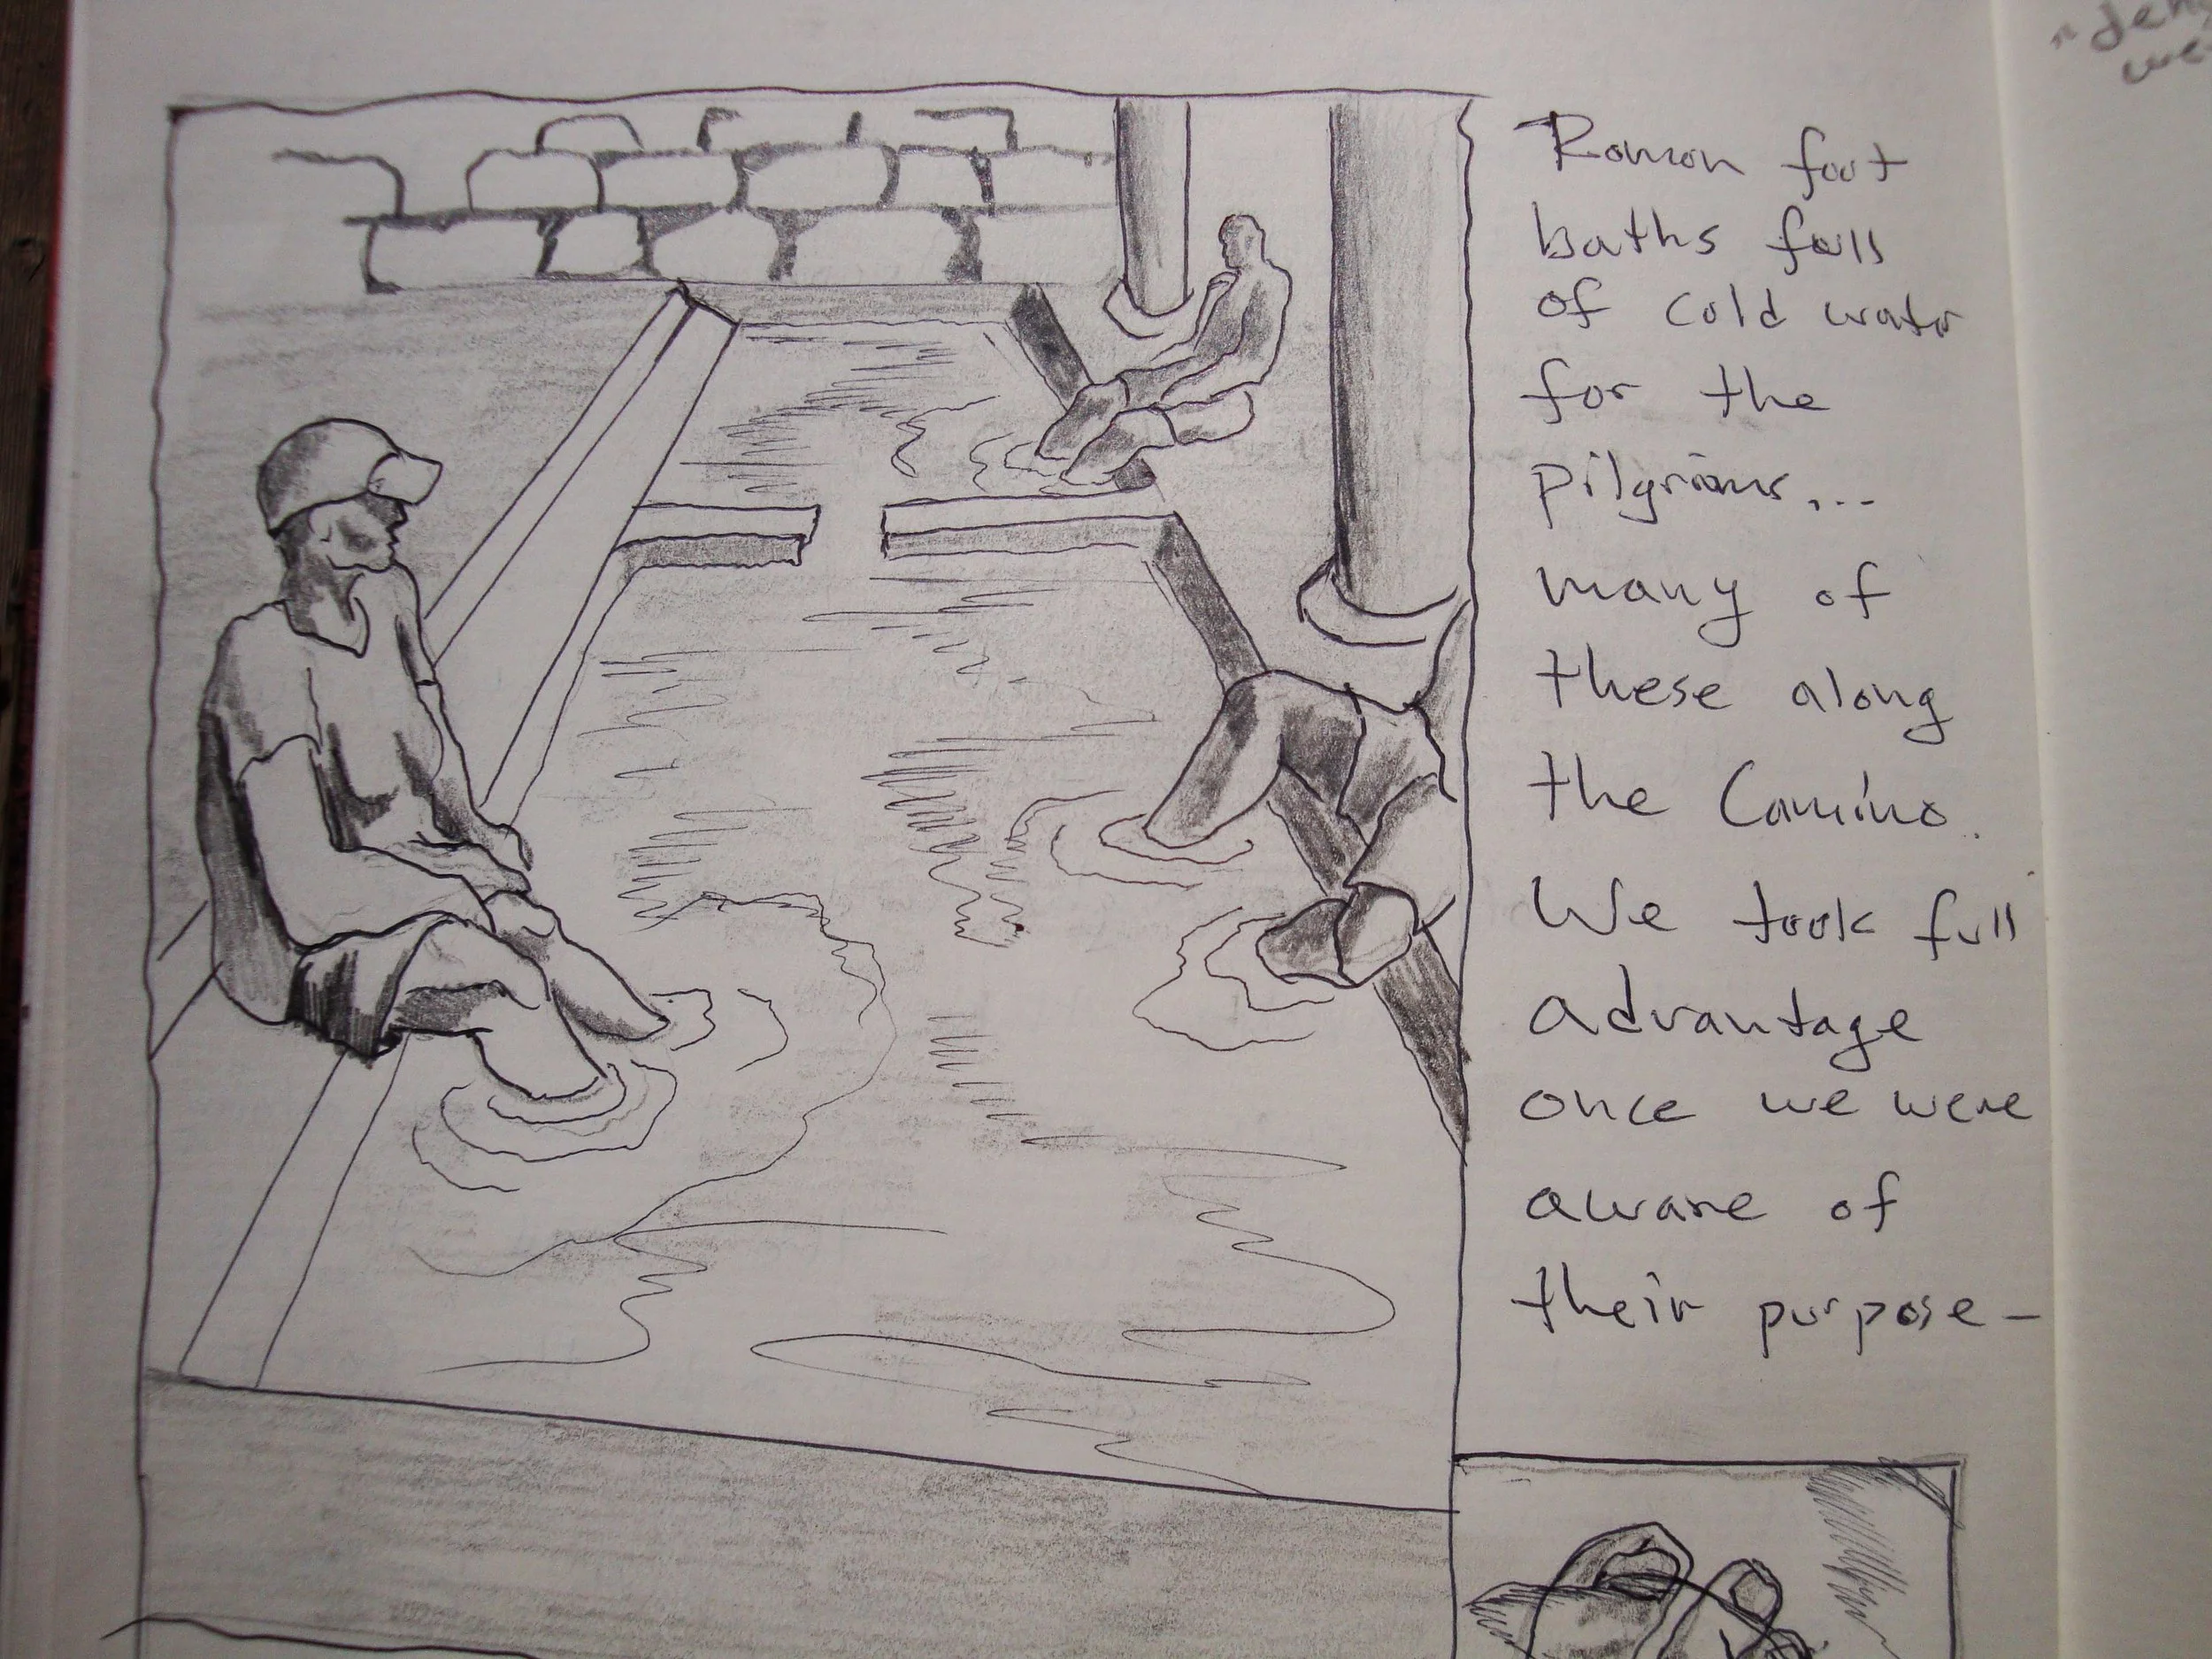 Roman foot
baths full
of cold water
for the
pilgrims...
many of
these along
the Camino.
We took full
advantage
once we were
aware of
their purpose-